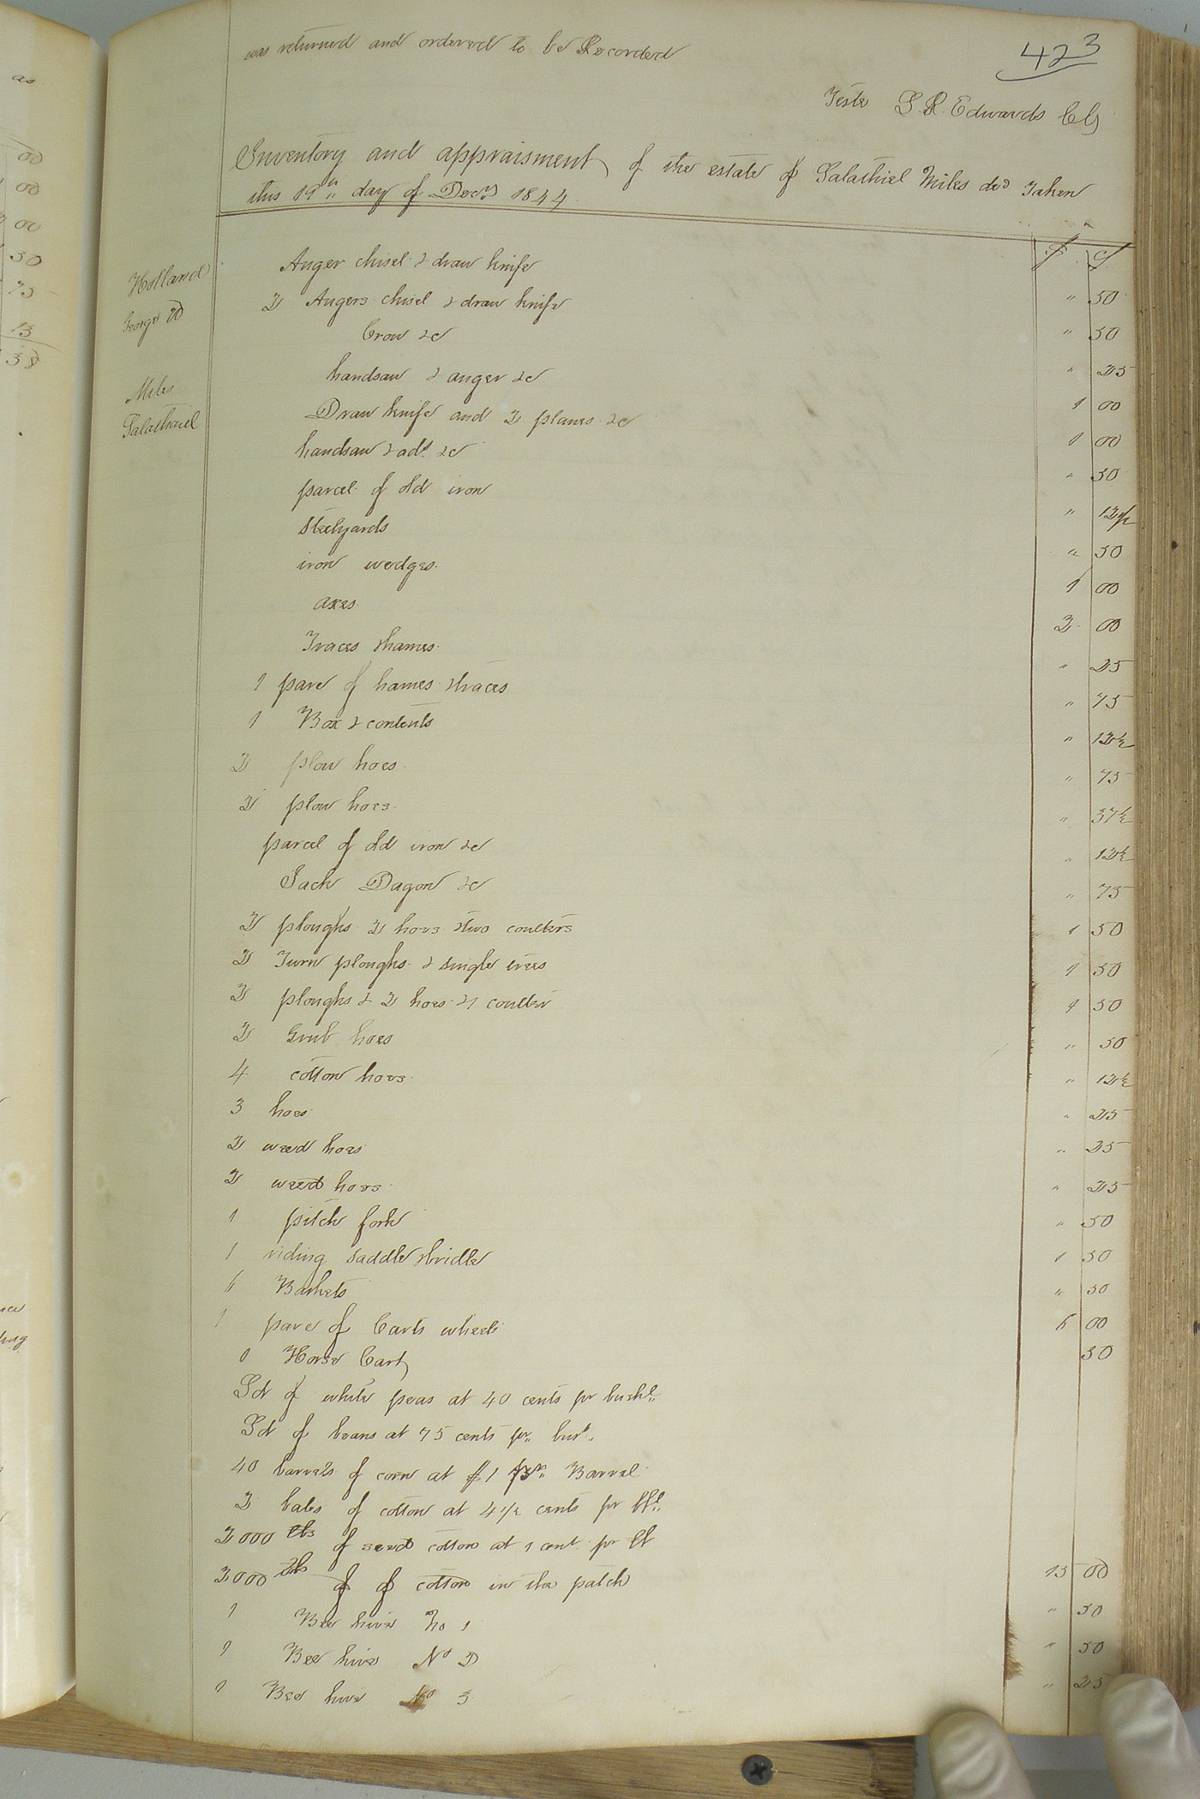 423
was returned and ordered to be Recorded
Teste S. R. Edwards Clk
Inventory and appraisment of the estate of Salathiel Miles decd Taken
this 19th day of Decr 1844
Holland
George W
Miles
Salathiel
$ c
Auger chisel & draw knife " 50
2 Augers chisel & draw knife " 50
Crow &c " 25
handsaw & auger &c 1 00
Draw knife and 2 planes &c 1 00
handsaw & adz &c " 50
parcel of old iron " 12½
Steelyards " 50
iron wedges 1 00
axes 2 00
Traces & hames " 25
1 pare of hames & traces " 75
1 Box & contents " 12½
2 plow hoes " 75
2 plow hoes " 37½
parcel of old iron &c " 12½
Jack &c " 75
2 ploughs 2 hoes & two coulters 1 50
2 Turn ploughs & single trees 1 50
2 ploughs & 2 hoes & 1 coulter 1 50
2 Grub hoes " 50
4 cotton hoes " 12½
3 hoes " 25
2 weed hoes " 25
2 weed hoes " 25
1 pitch fork " 50
1 riding saddle & bridle 1 50
6 Baskets " 50
1 pare of Carts wheels 6 00
1 Horse Cart 50
Lot of white peas at 40 cents pr bushl
Lot of beans at 75 cents pr bus
40 barrels of corn at $1 pr Barrel
2 bales of cotton at 4½ cents pr lb
2000 lbs of seed cotton at 1 cent pr lb
2000 lbs of of cotton in the patch 15 00
1 Bee hive No 1 " 50
1 Bee hive No 2 " 50
1 Bee hive No 3 " 25